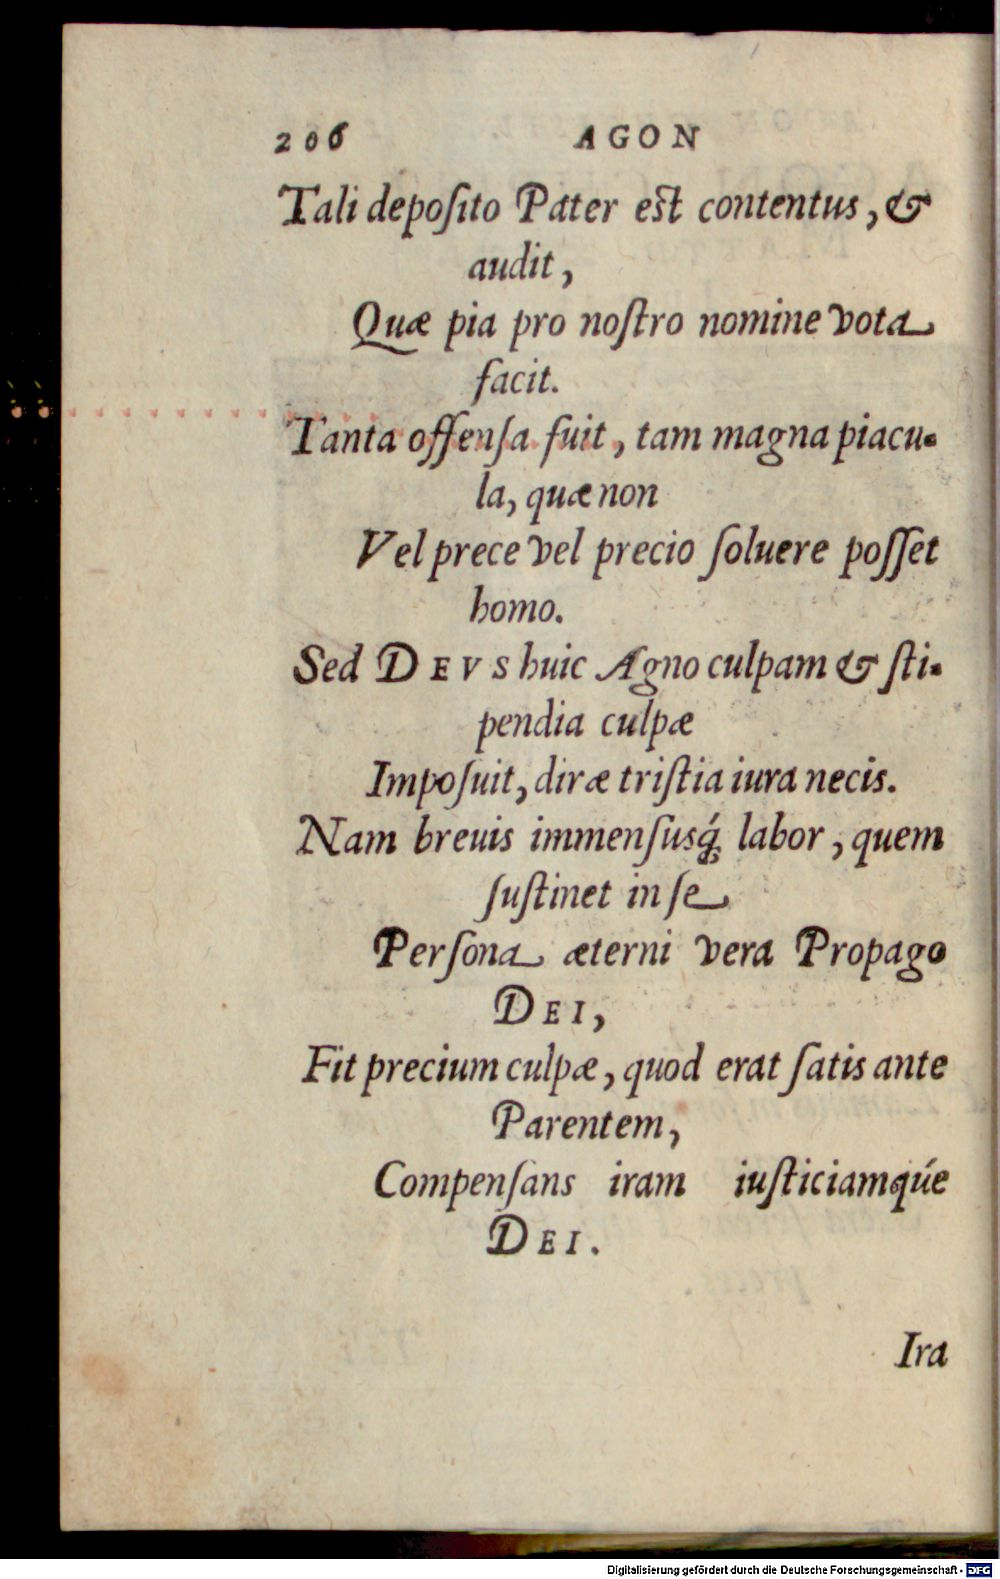 206 AGON
Tali depoſito Pater eſt contentus, &
audit,
Quæ pia pro noſtro nomine vota
facit.
Tanta offenſa fuit, tam magna piacu-
la, quæ non
Vel prece vel precio ſoluere poſſet
homo.
Sed DEVS huic Agno culpam & ſti-
pendia culpæ
Impoſuit, diræ triſtia iura necis.
Nam breuis immenſusq́; labor, quem
ſuſtinet in ſe
Perſona æterni vera Propago
DEI,
Fit precium culpæ, quod erat ſatis ante
Parentem,
Compenſans iram iuſticiamq́ue
DEI.
Ira
Digitalisierung gefördert durch die Deutsche Forschungsgemeinschaft - DFG